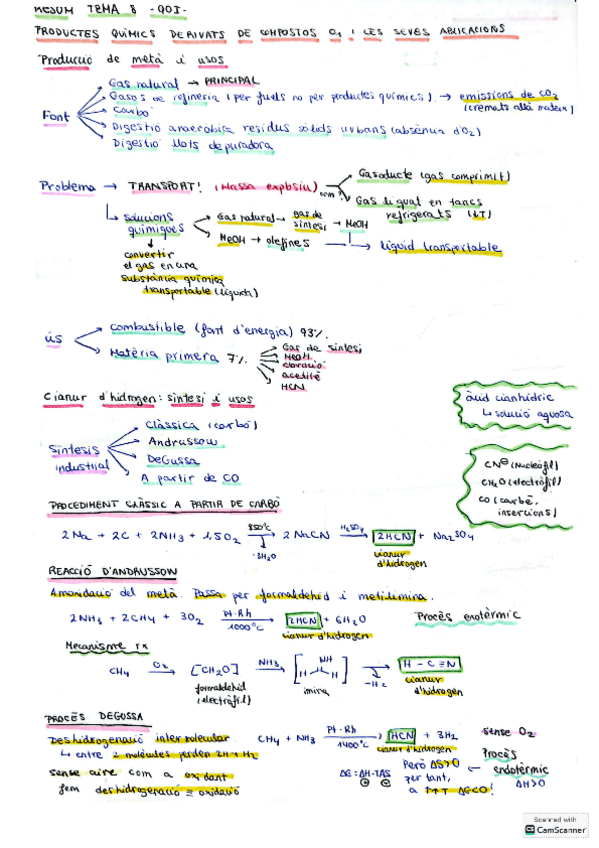 RESUM TEMA 8 -QOI-
PRODUCTES QUÍMICS DERIVATS DE COMPOSTOS C1 I LES SEVES APLICACIONS
Producció de metà i usos
Font
Gas natural → PRINCIPAL
Gasos de refineria (per fuels no per productes químics) → emissions de CO2
(cremats allà mateix)
Carbó
Digestió anaeròbia residus sòlids urbans (absència d'O2)
Digestió llots depuradora
Problema → TRANSPORT! (Massa explosiu) com?
Gasoducte (gas comprimit)
Gas liquat en tancs
refrigerats (↓T)
solucions
químiques
Gas natural → gas de síntesi → MeOH
MeOH → olefines
líquid transportable
convertir
el gas en una
substància química
transportable (líquida)
ús
combustible (font d'energia) 93%
Matèria primera 7%
Gas de síntesi
MeOH
cloració
acetilè
HCN
Cianur d'hidrogen: síntesi i usos
àcid cianhídric
↳ solució aquosa
Síntesis
industrial
Clàssica (carbó)
Andrussow
DeGussa
A partir de CO
CN⊖ (Nucleòfil)
CH2O (electròfil)
CO (carbè,
insercions)
PROCEDIMENT CLÀSSIC A PARTIR DE CARBÓ
2Na + 2C + 2NH3 + 1,5O2 850ºC → -3H2O 2NaCN H2SO4 → 2HCN + Na2SO4
cianur
d'hidrogen
REACCIÓ D'ANDRUSSOW
Amonidació del metà. Passa per formaldehid i metilimina.
2NH3 + 2CH4 + 3O2 Pt-Rh → 1000ºC 2HCN + 6H2O
cianur d'hidrogen
Procès exotèrmic
Mecanisme rx
CH4 O2 → [CH2O] NH3 → [H NH H] → -H2 H-C≡N
formaldehid
(electròfil)
imina
cianur
d'hidrogen
PROCÉS DEGUSSA
Deshidrogenació intermolecular
↳ entre 2 molècules perden 2H → H2
sense aire com a oxidant
fem deshidrogenació ≡ oxidació
CH4 + NH3 Pt-Rh → 1400ºC HCN + 3H2
cianur d'hidrogen
sense O2
Procès
endotèrmic
ΔH>0
ΔG=ΔH-TΔS
⊕ ⊕
Però ΔS>0
per tant,
a ↑↑T ΔG<0!
Scanned with
CamScanner